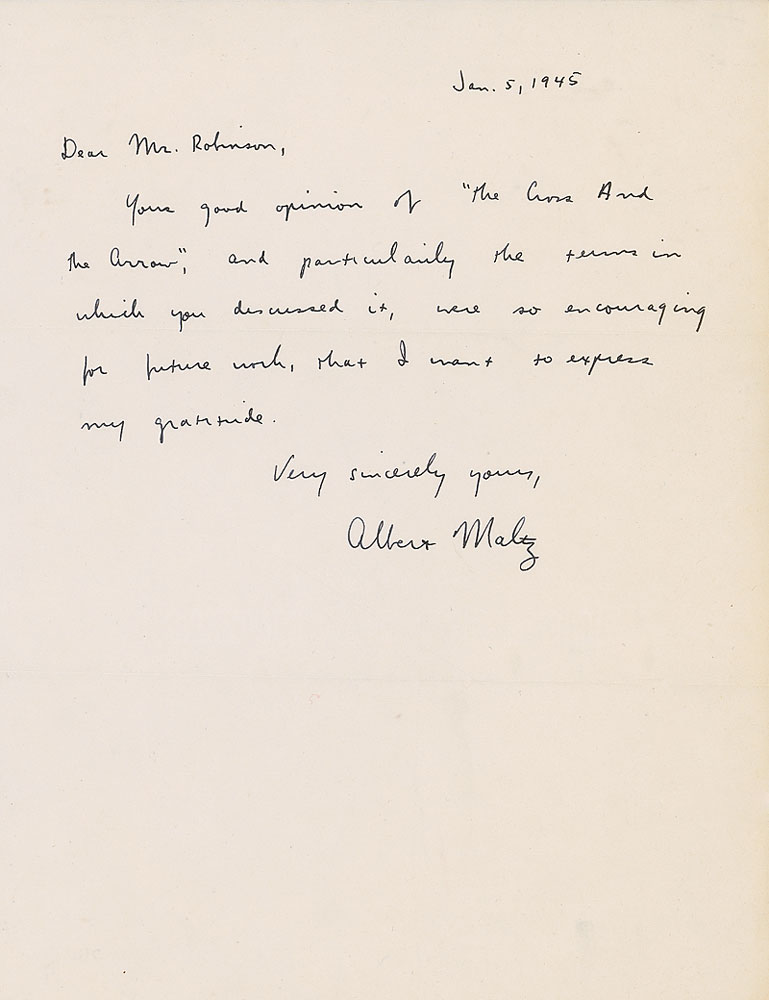 Jan. 5, 1945
Dear Mr. Robinson,
Your good opinion of "The Cross And
the Arrow", and particularily the terms in
which you discussed it, were so encouraging
for future work, that I want to express
my gratitude.
Very sincerely yours,
Albert Maltz